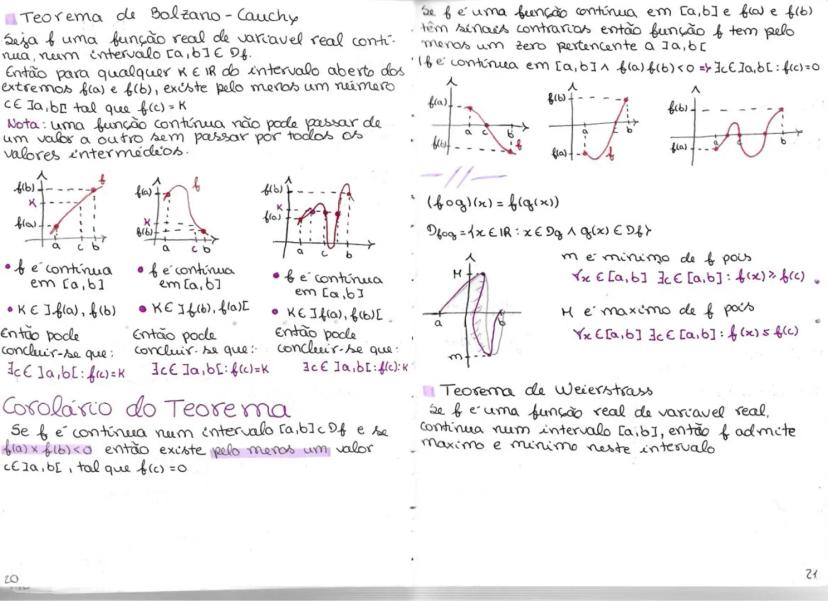 Teorema de Bolzano-Cauchy
Seja f uma função real de variavel real contí-
nua, num intervalo [a,b] ∈ Df.
Então para qualquer K ∈ IR do intervalo aberto dos
extremos f(a) e f(b), existe pelo menos um número
c ∈ ]a,b[ tal que f(c) = K
Nota: uma função contínua não pode passar de
um valor a outro sem passar por todos os
valores intermédios.
f(b) K f(a) a c b f
f(a) K f(b) a c b f
f(b) K f(a) a c b
• f é contínua
em [a,b]
• K ∈ ]f(a), f(b)
Então pode
concluir-se que:
∃c ∈ ]a,b[ : f(c)=K
• f é contínua
em [a,b]
• K ∈ ]f(b), f(a)[
Então pode
concluir-se que:
∃c ∈ ]a,b[ : f(c)=K
• f é contínua
em [a,b]
• K ∈ ]f(a), f(b)[
Então pode
concluir-se que:
∃c ∈ ]a,b[ : f(c): K
Corolário do Teorema
Se f é contínua num intervalo [a,b] ⊂ Df e se
f(a) x f(b)<0 então existe pelo menos um valor
c ∈ ]a,b[, tal que f(c) = 0
20
Se f é uma função contínua em [a,b] e f(a) e f(b)
têm sinais contrarios então função f tem pelo
menos um zero pertencente a ]a,b[
(f é contínua em [a,b] ∧ f(a) f(b) < 0 => ∃c ∈ ]a,b[ : f(c)=0
f(a) f(b) a c b f
f(b) f(a) a c b f
f(b) f(a) a b
-//-
(f o g)(x) = f(g(x))
Dfog = {x ∈ IR : x ∈ Dg ∧ g(x) ∈ Df}
M a b m
m é minimo de f pois
∀x ∈ [a,b] ∃c ∈ [a,b] : f(x) ≥ f(c)
M é maximo de f pois
∀x ∈ [a,b] ∃c ∈ [a,b] : f(x) ≤ f(c)
Teorema de Weierstrass
Se f é uma função real de variavel real,
contínua num intervalo [a,b], então f admite
maximo e minimo neste intervalo
21